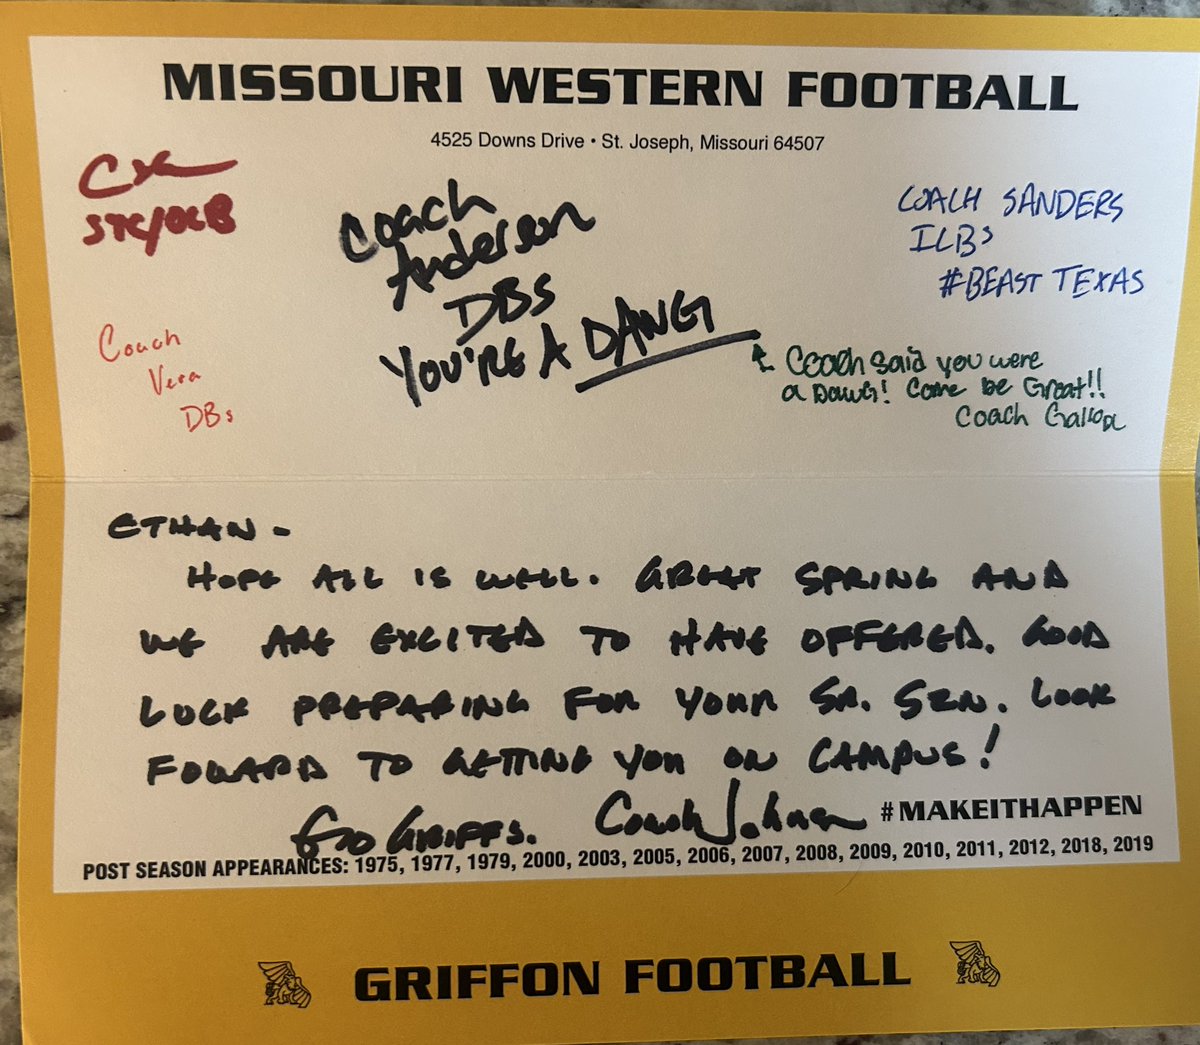 MISSOURI WESTERN FOOTBALL
4525 Downs Drive • St. Joseph, Missouri 64507
STC/OLB
Coach
Anderson
DBs
YOU'RE A DAWG
COACH SANDERS
ILBs
#BEAST TEXAS
Coach
Vera
DBs
Coach said you were
a DAWG! Come be Great!!
Coach
ETHAN -
HOPE ALL IS WELL. GREAT SPRING AND
WE ARE EXCITED TO HAVE OFFERED. GOOD
LUCK PREPARING FOR YOUR SR. SZN. LOOK
FOWARD TO GETTING YOU ON CAMPUS!
GO GRIFFS. Coach Johnson
#MAKEITHAPPEN
POST SEASON APPEARANCES: 1975, 1977, 1979, 2000, 2003, 2005, 2006, 2007, 2008, 2009, 2010, 2011, 2012, 2018, 2019
GRIFFON FOOTBALL